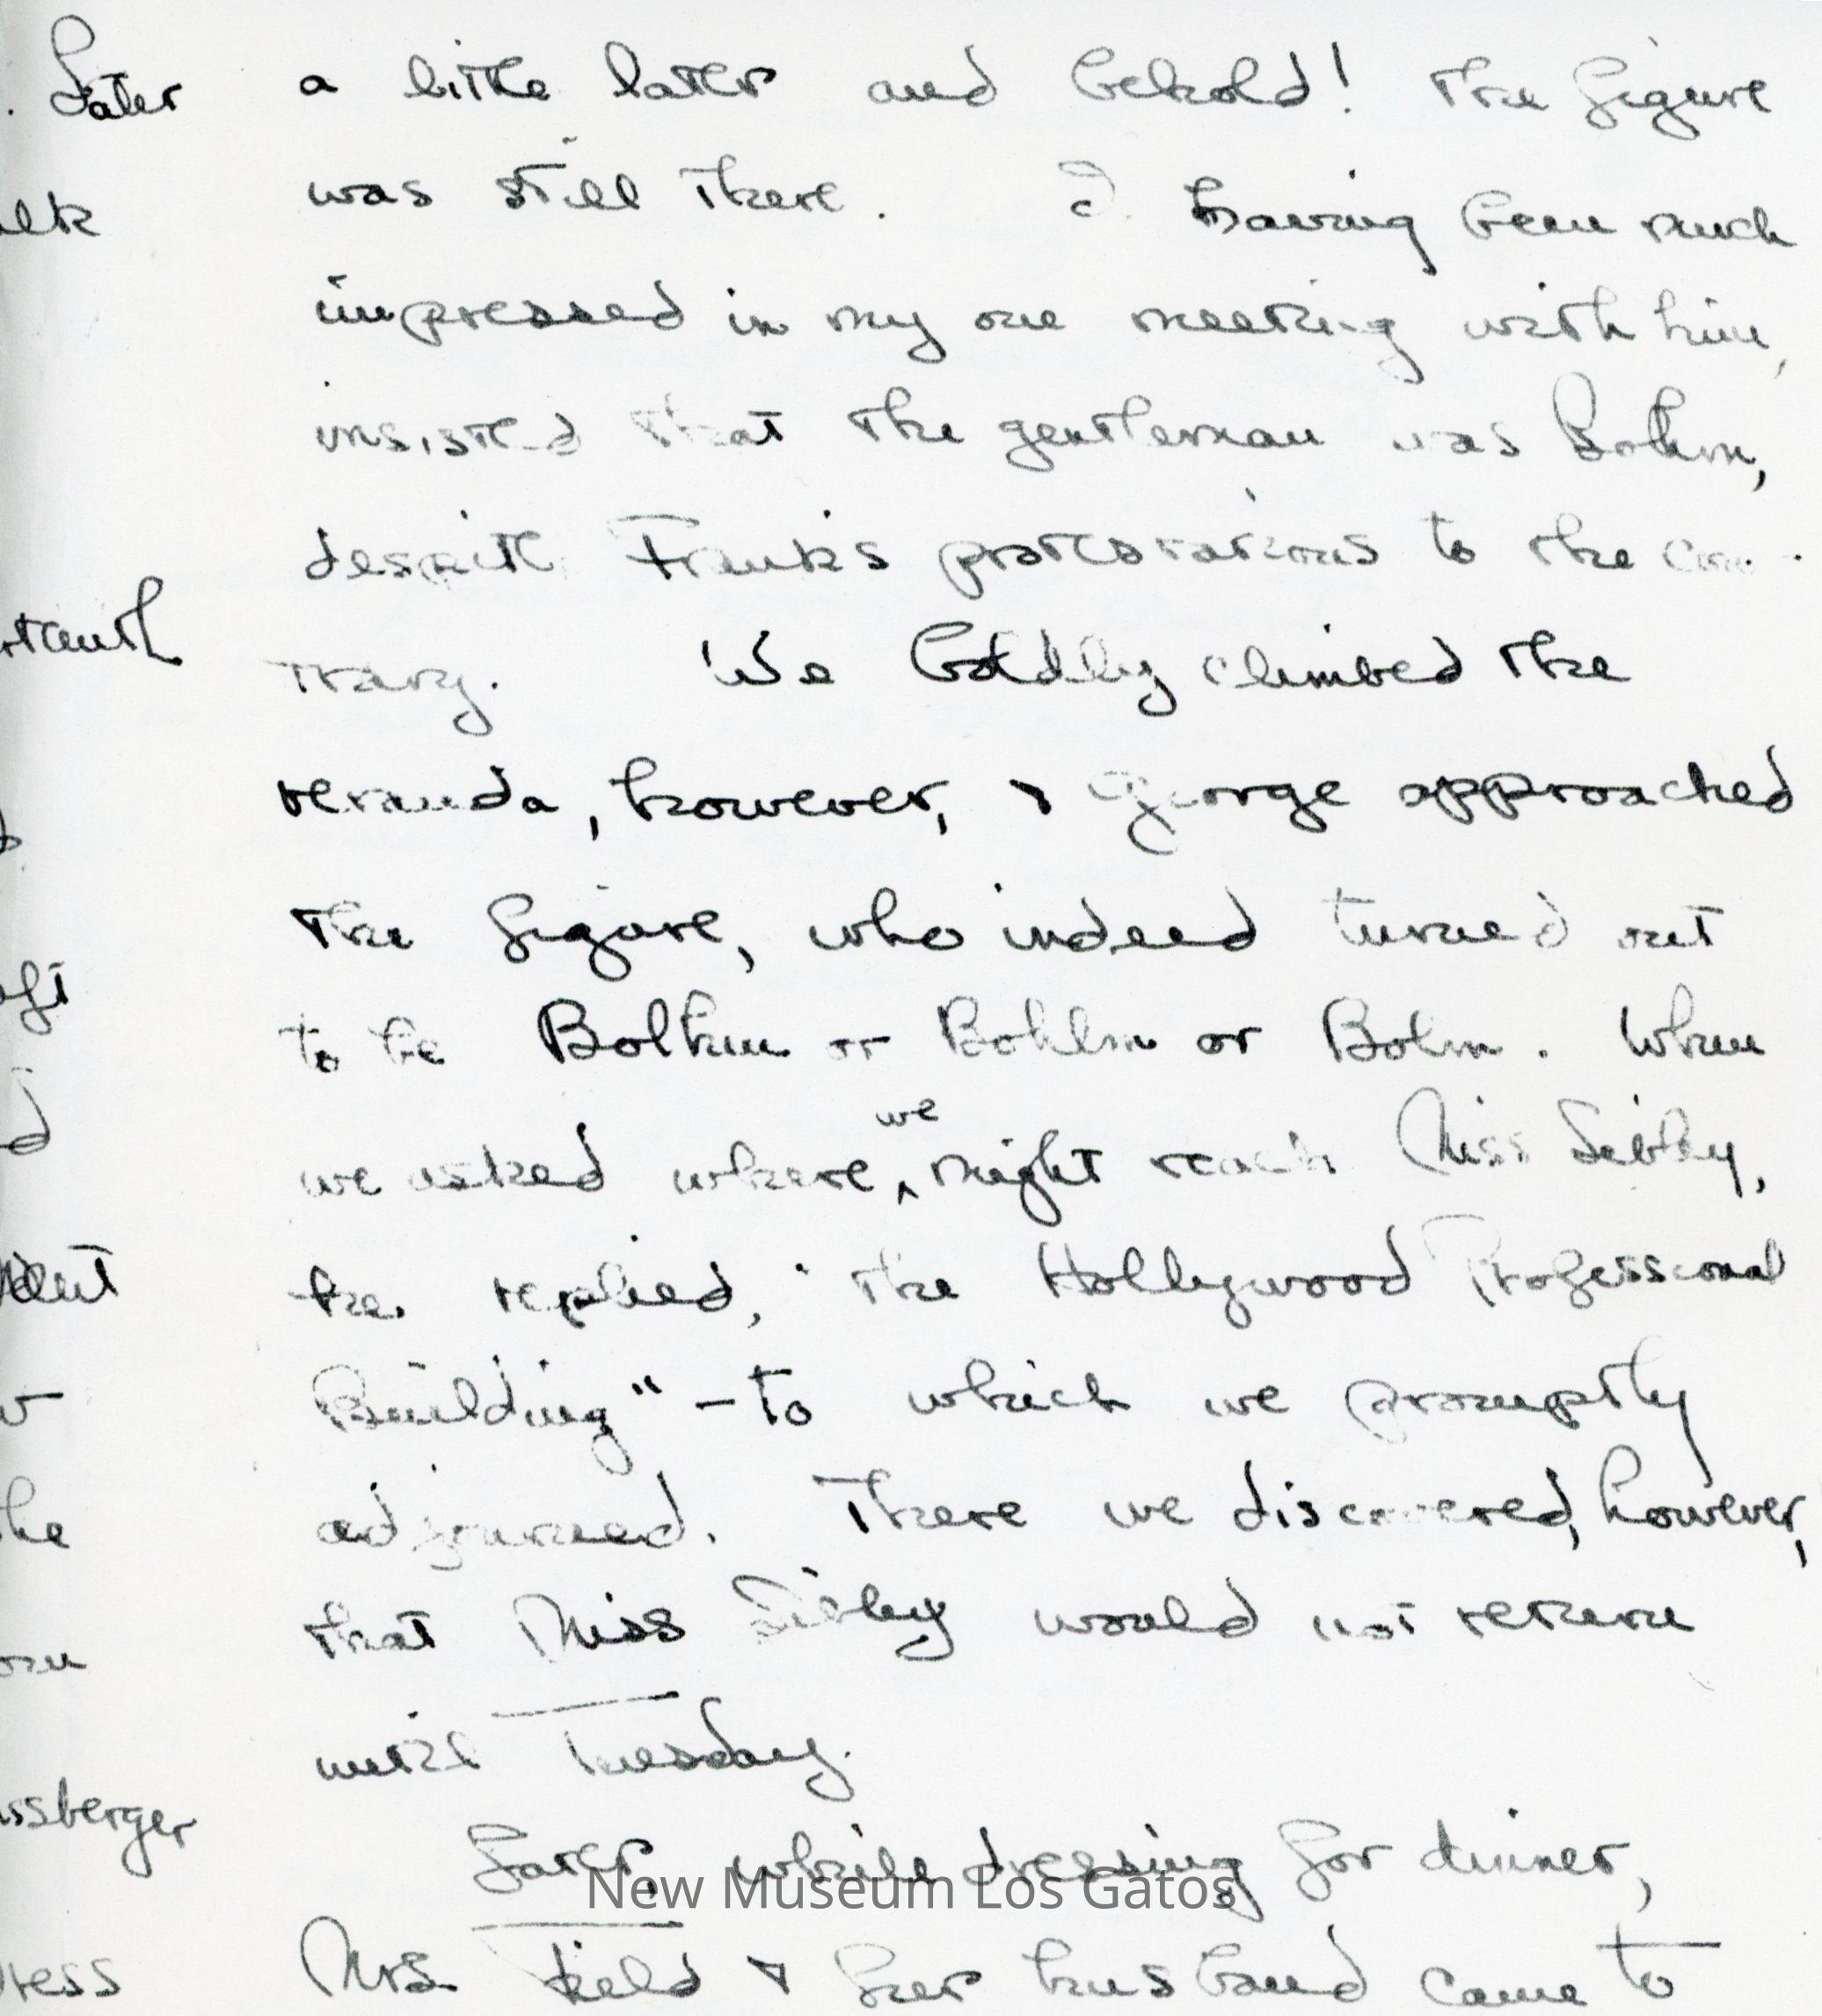 a little later and behold! The figure
was still there. I having been much
impressed in my one meeting with him,
insisted that the gentleman was Bohm,
despite Frank's protestations to the con-
trary. We boldly climbed the
veranda, however, & George approached
the figure, who indeed turned out
to be Bolhm or Bohlm or Bohm. When
we asked where ^we might reach Miss Sibley,
he replied, "the Hollywood Professional
Building" – to which we promptly
adjourned. There we discovered, however,
that Miss Sibley would not return
until Tuesday.
Later, while dressing for dinner,
Mrs. Field & her husband came to
. Later
alk
oft
dent
the
ssberger
ress
New Museum Los Gatos